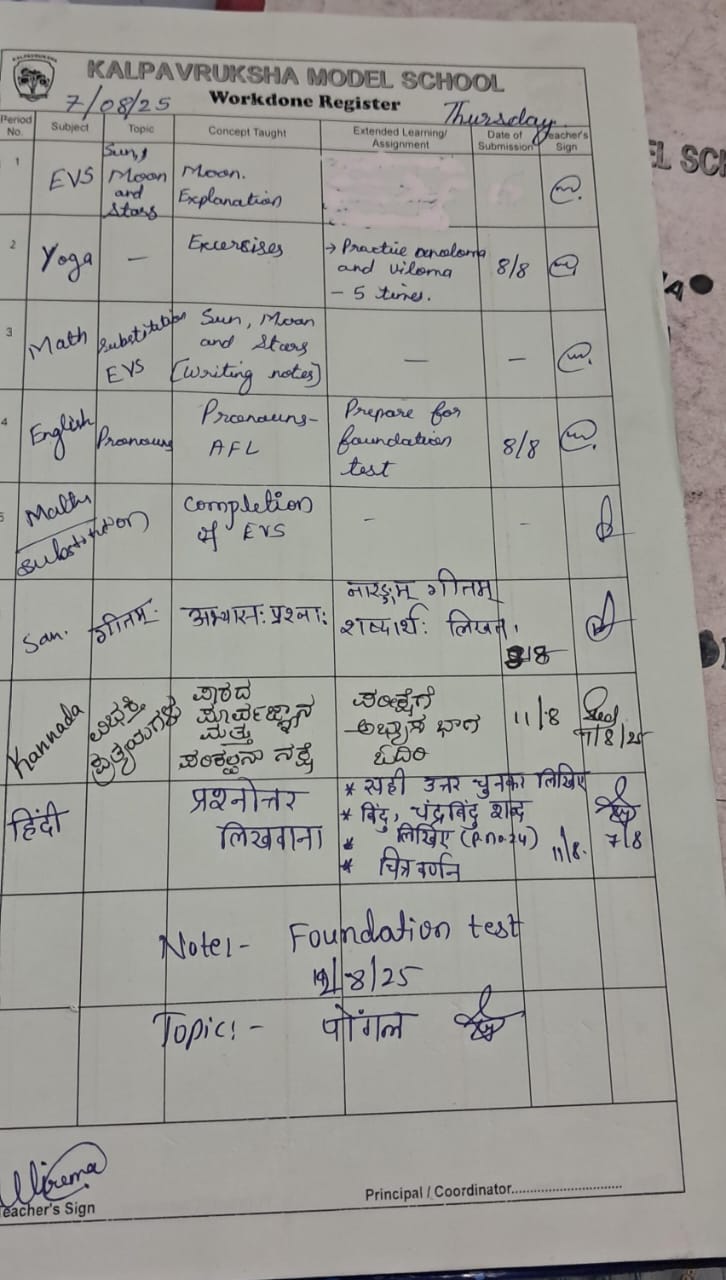 KALPAVRUKSHA
KALPAVRUKSHA MODEL SCHOOL
7/08/25 Workdone Register Thursday
Period No. Subject Topic Concept Taught Extended Learning/ Assignment Date of Submission Teacher's Sign
1 EVS Sun, Moon and Stars Moon. Explanation
2 Yoga – Excersises → Practice and viloma – 5 times. 8/8
3 Math Substitution EVS Sun, Moon and Stars [Writing notes] – –
4 English Pronouns Pronouns- AFL Prepare for foundation test 8/8
5 Maths Substitution Completion of EVS - -
San. गीतम्. अभ्यासः प्रश्नाः गीतम् शब्दार्थः लिखत. 8
Kannada ವಿಭಕ್ತಿ ಪ್ರತ್ಯಯಗಳು ಪಾಠದ ಮತ್ತು ನಕ್ಷೆ ಅಭ್ಯಾಸ ಭಾಗ ಓದಿರಿ 11/8 11/8/25
हिंदी प्रश्नोत्तर लिखवाना * सही उत्तर चुनकर लिखिए
* बिंदु, चंद्रबिंदु शब्द
* लिखिए (P.no.24)
* चित्र वर्णन 11/8. 7/8
Note:- Foundation test
/8/25
Topic:- पोंगल
Teacher's Sign
Principal / Coordinator
EL SCH